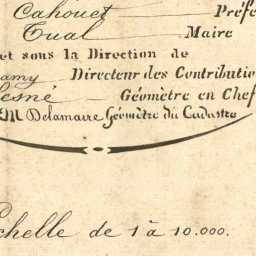 Cahouet Préfe
Tual Maire
et sous la Direction de
amy Directeur des Contributio
esné Géomètre en Chef
M Delamaire Géomètre du Cadastre
chelle de 1 à 10.000.